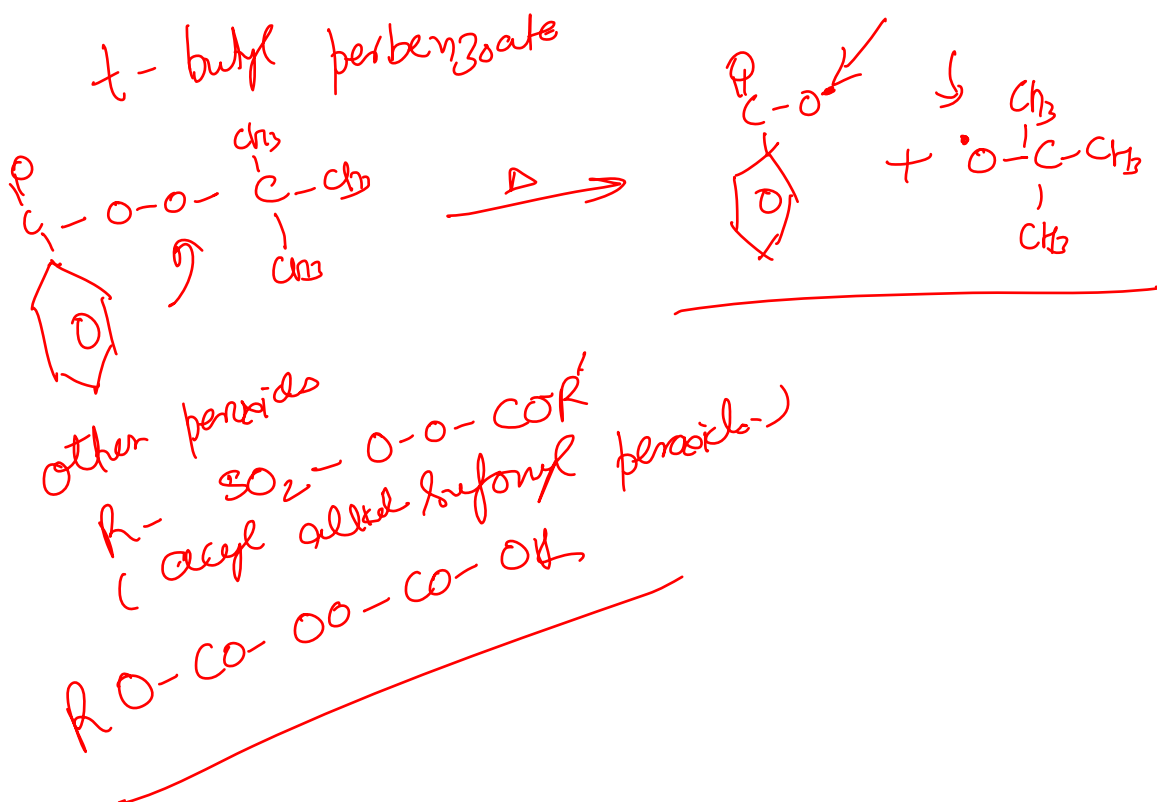 t - butyl perbenzoate
O
C - O - O - C - CH3
CH3
CH3
O
Δ
O
C - O•
O
+ •O - C - CH3
CH3
CH3
other peroxids
R - SO2 - O - O - COR'
( acyl alkyl sulfonyl peroxides )
RO - CO - OO - CO - OR